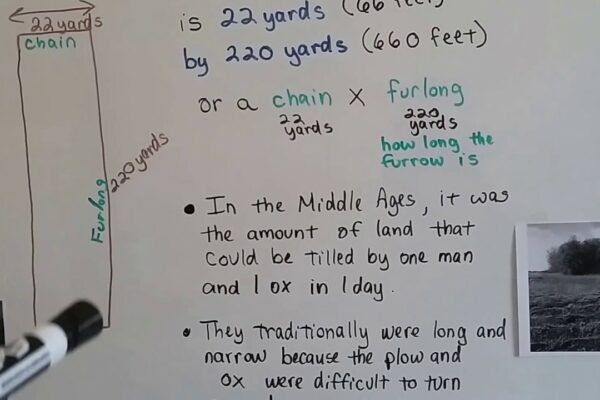 22 yards
chain
Furlong
220 yards
is 22 yards (66 feet)
by 220 yards (660 feet)
or a chain X furlong
22 yards
220 yards
how long the
furrow is
• In the Middle Ages, it was
the amount of land that
could be tilled by one man
and 1 ox in 1 day.
• They traditionally were long and
narrow because the plow and
ox were difficult to turn